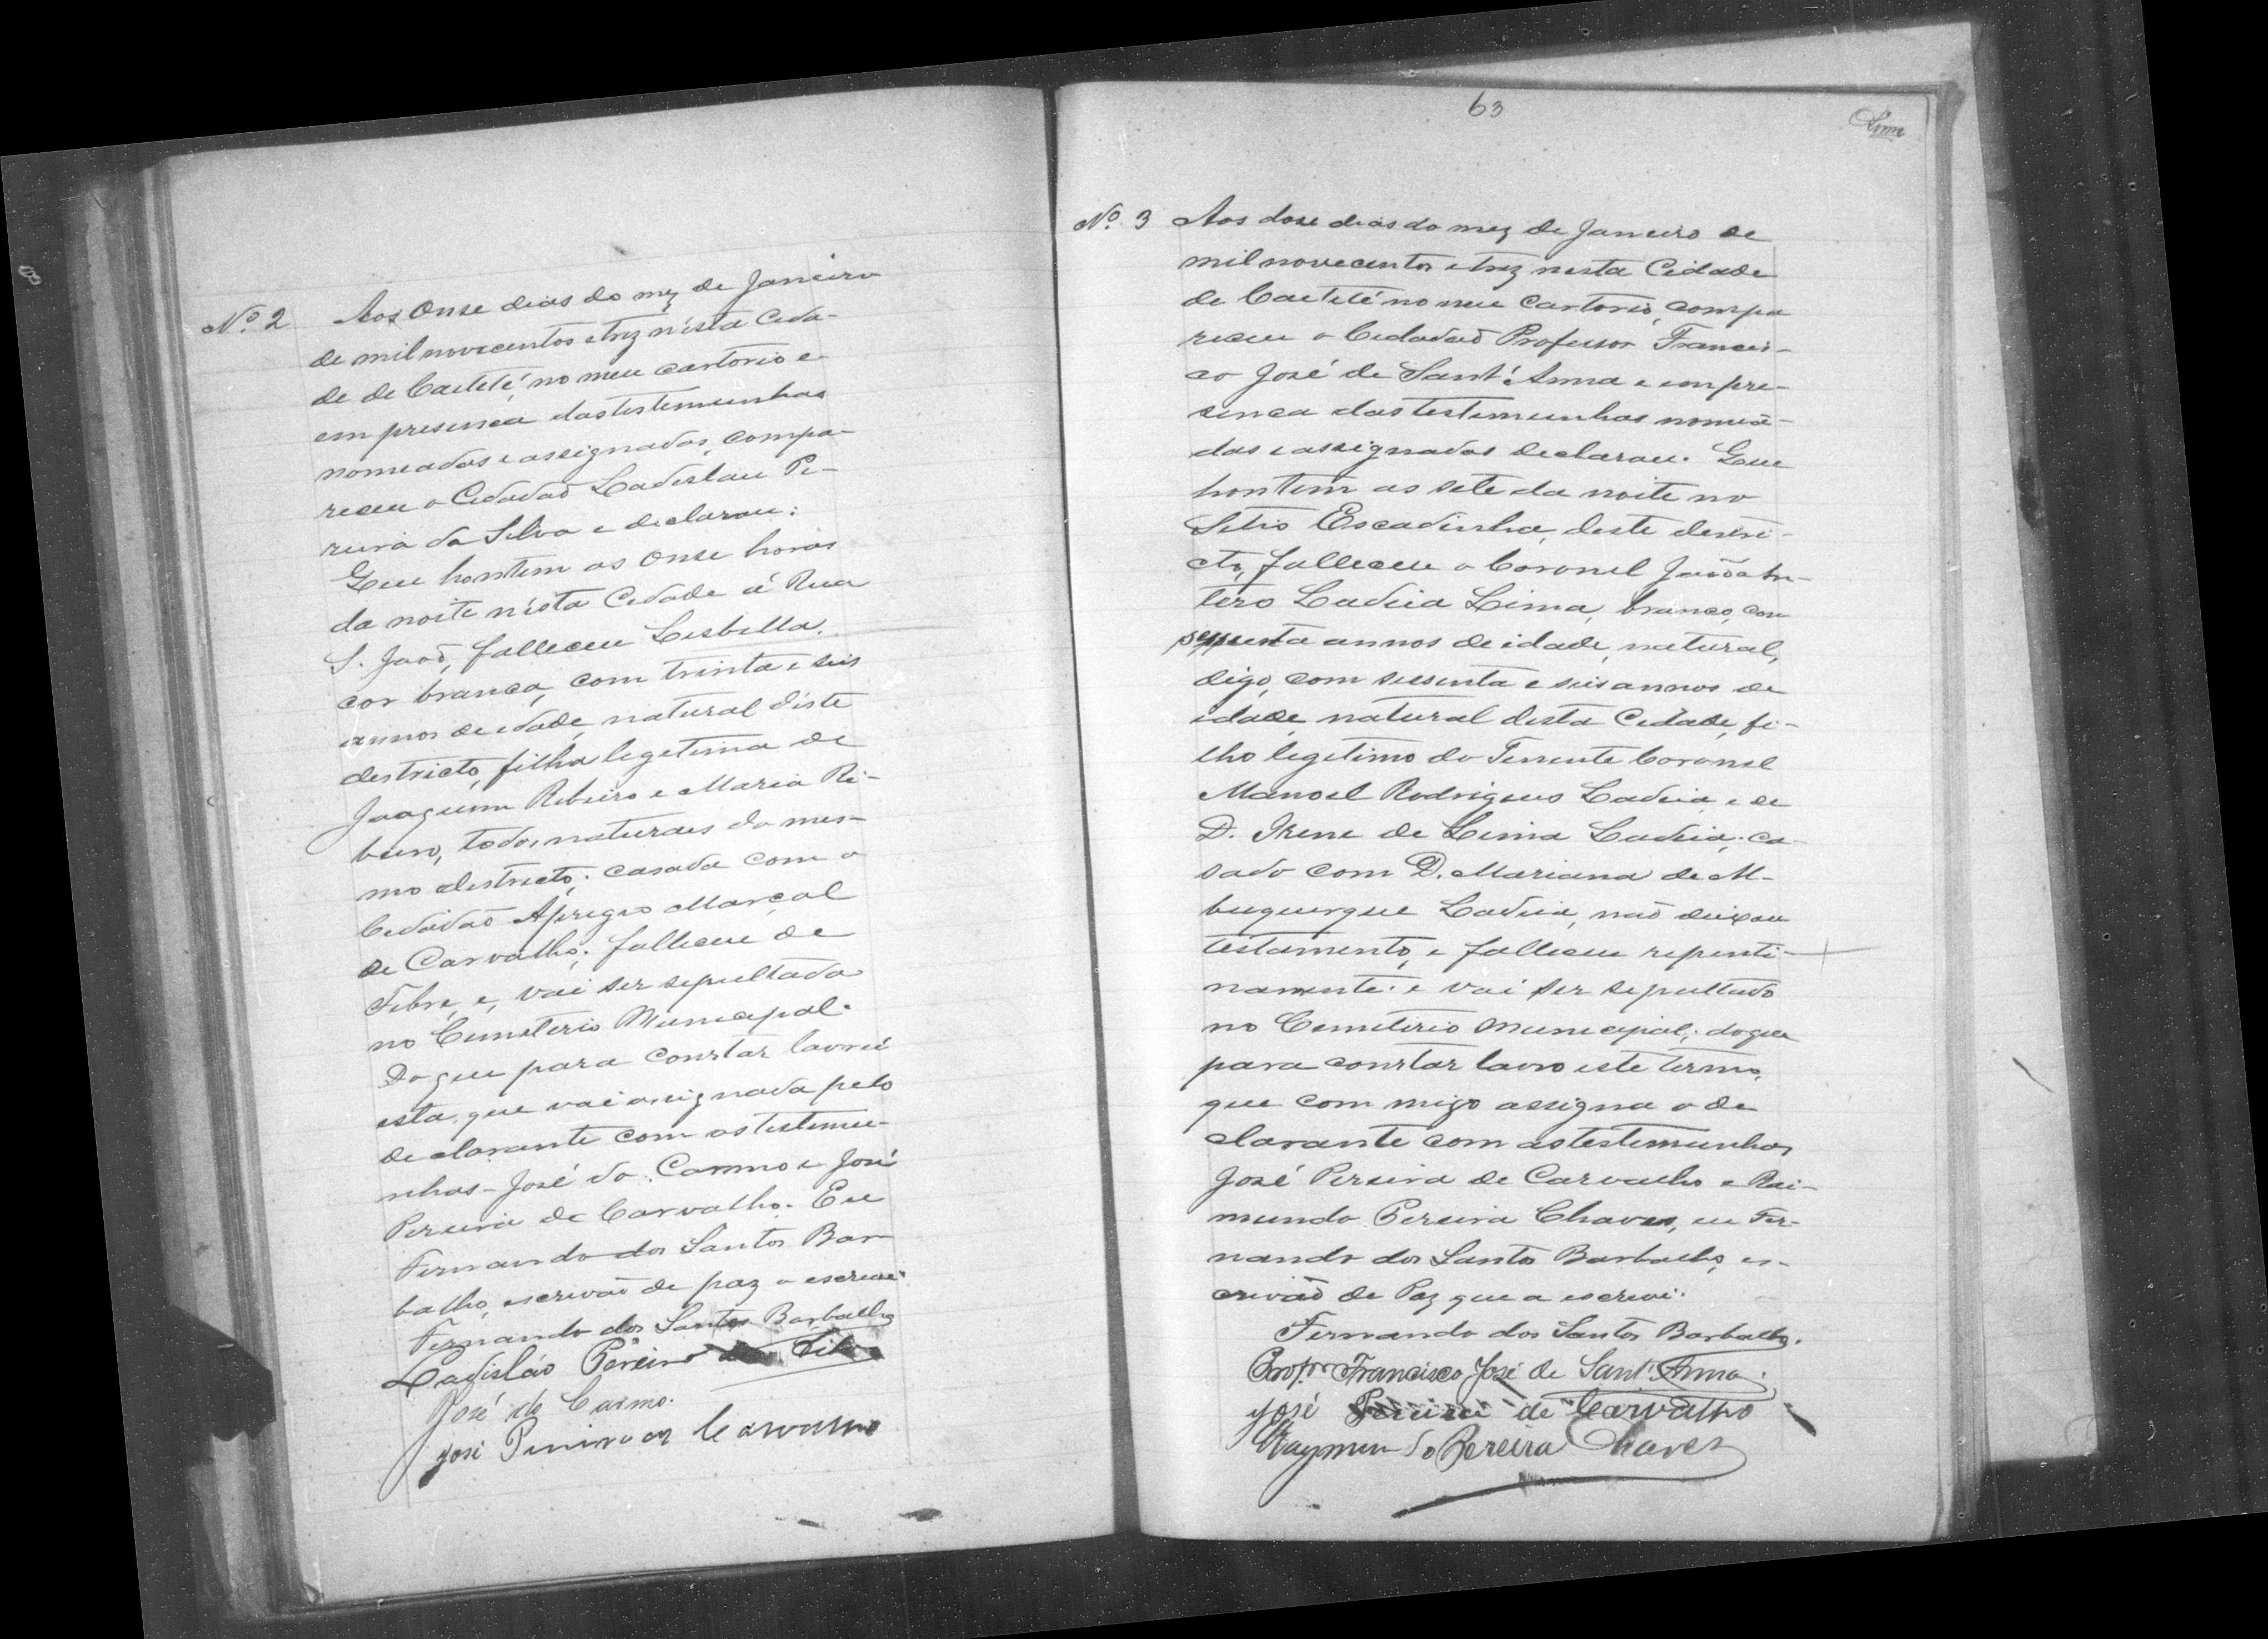 Nº 2 Aos Onse dias do mez de Janeiro
de mil novecentos e trez n'esta Cida-
de de Caetité, no meu cartorio e
em presenca das testemunhas
nomeadas e assignadas, compa-
receu o Cidadaõ Ladislau Pe-
reira da Silva e declarou:
Que hontem as Onse horas
da noite n'esta Cidade á Rua
S. Joaõ, falleceu Lisbella,
cor branca, com trinta e seis
annos de edade, natural d'este
destricto, filha legetima de
Joaquim Ribeiro e Maria Ri-
beiro, todos naturaes do mes-
mo destricto; casada com o
Cidadaõ Aprigio Marçal
de Carvalho; falleceu de
Febre, e, vai ser sepultada
no Cemeterio Municipal.
Do que para constar lavrei
esta, que vai assignada pelo
declarante com as testemu-
nhas - José do Carmo e José
Pereira de Carvalho. Eu
Fernando dos Santos Bar-
balho, escrivaõ de paz o escrevi.
Fernando dos Santos Barbalho
Ladisláo Pereira da Silva
José do Carmo.
José Pereira de Carvalho
63
Lima
Nº 3 Aos dose dias do mez de Janeiro de
mil novecentos e trez nesta Cidade
de Caetité no meu Cartorio, compa
receu o Cidadaõ Professor Francis-
co José de Sant'Anna e em pre-
senca das testemunhas nomea-
das e assignadas declarou. Que
hontem as sete da noite no
Sitio Escadinha, deste destri-
cto, falleceu o Coronel Joaõ An-
tero Ladeia Lima, branco, com
annos de idade, natural,
digo, com sessenta e seis annos de
idade, natural desta Cidade, fi-
lho legitimo do Tenente Coronel
Manoel Rodrigues Ladeia, e de
D. Irene de Lima Ladeia; ca-
sado com D. Mariana de Al-
buquerque Ladeia, naõ deixou
testamento, e falleceu repenti-
namente: e vai ser sepultado
no Cemiterio Municipal; do que
para constar lavro este termo,
que com migo assigna o de
clarante com as testemunhas
José Pereira de Carvalho e Rai-
mundo Pereira Chaves, eu Fer-
nando dos Santos Barbalho, es-
crivaõ de Paz que a escrevi.
Fernando dos Santos Barbalho.
Prof.or Francisco José de Sant'Anna.
José Pereira de Carvalho
Raymundo Pereira Chaves